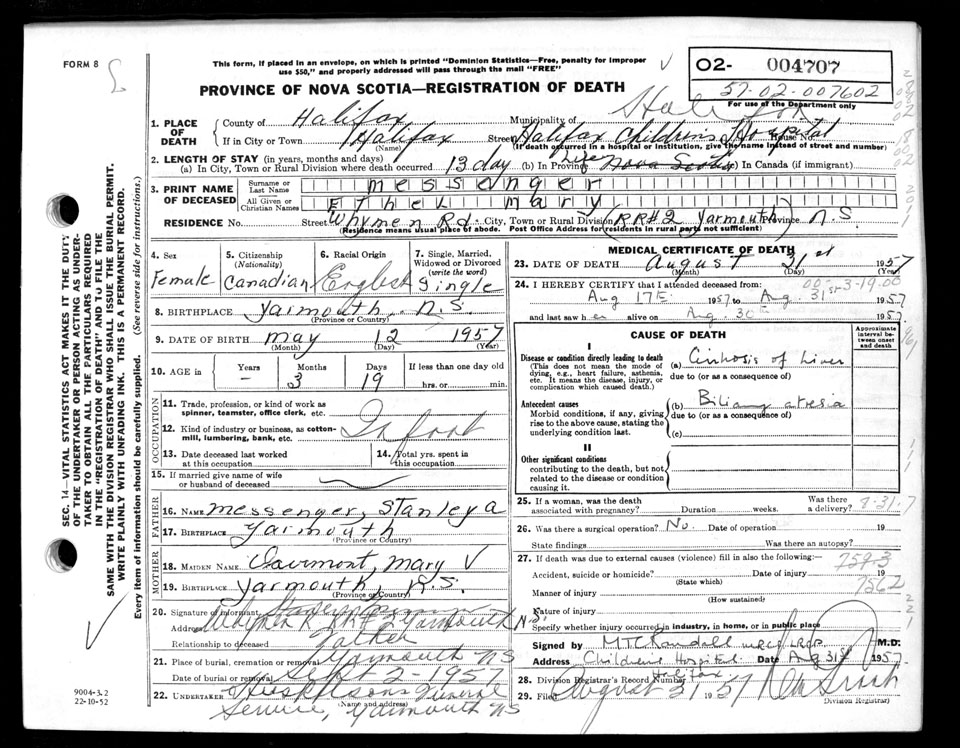 FORM 8
This form, if placed in an envelope, on which is printed "Dominion Statistics—Free, penalty for improper
use $50," and properly addressed will pass through the mail "FREE"
PROVINCE OF NOVA SCOTIA—REGISTRATION OF DEATH
O2- 004707
57-02-007602
For use of the Department only
1. PLACE OF DEATH
County of Halifax Municipality of Halifax
If in City or Town Halifax Street Halifax Children's Hospital House No.
(If death occurred in a hospital or institution, give the name instead of street and number)
2. LENGTH OF STAY (in years, months and days)
(a) In City, Town or Rural Division where death occurred 13 day (b) In Province Life Nova Scotia In Canada (if immigrant)
3. PRINT NAME OF DECEASED
Surname or Last Name messenger
All Given or Christian Names Ethel mary
RESIDENCE No. Street Whymen Rd. City, Town or Rural Division (RR#2 Yarmouth) Province N.S
(Residence means usual place of abode. Post Office Address for residents in rural parts not sufficient)
4. Sex
Female
5. Citizenship
(Nationality)
Canadian
6. Racial Origin
English
7. Single, Married,
Widowed or Divorced
(write the word)
Single
8. BIRTHPLACE Yarmouth N.S.
(Province or Country)
9. DATE OF BIRTH may 12 1957
(Month) (Day) (Year)
10. AGE in
Years Months Days If less than one day old
- 3 19 hrs. or min.
OCCUPATION
11. Trade, profession, or kind of work as
spinner, teamster, office clerk, etc.
12. Kind of industry or business, as cotton-
mill, lumbering, bank, etc.
Infant
13. Date deceased last worked
at this occupation
14. Total yrs. spent in
this occupation
15. If married give name of wife
or husband of deceased
FATHER
16. NAME messenger, Stanley a
17. BIRTHPLACE Yarmouth
(Province or Country)
MOTHER
18. MAIDEN NAME Clairmont, mary V
19. BIRTHPLACE Yarmouth, N.S.
(Province or Country)
20. Signature of informant
Address R.R.#2 Yarmouth N.S.
Relationship to deceased Father
21. Place of burial, cremation or removal Yarmouth NS
Date of burial or removal Sept 2-1957
22. UNDERTAKER Huskilsons Funeral
(Name and address)
Service, Yarmouth NS
MEDICAL CERTIFICATE OF DEATH
23. DATE OF DEATH August 31st 1957
(Month) (Day) (Year)
24. I HEREBY CERTIFY that I attended deceased from:
Aug 17th 1957 to Aug. 31st 1957
and last saw her alive on Aug. 30th 1957
CAUSE OF DEATH
Approximate
interval between
onset
and death
I
Disease or condition directly leading to death
(This does not mean the mode of
dying, e.g., heart failure, asthenia,
etc. It means the disease, injury, or
complication which caused death.)
(a) Cirrhosis of Liver
due to (or as a consequence of)
Antecedent causes
Morbid conditions, if any, giving
rise to the above cause, stating the
underlying condition last.
(b) Biliary atresia
due to (or as a consequence of)
(c)
II
Other significant conditions
contributing to the death, but not
related to the disease or condition
causing it.
25. If a woman, was the death
associated with pregnancy? Duration weeks. Was there
a delivery?
8-31-7
26. Was there a surgical operation? No. Date of operation 19
State findings Was there an autopsy?
27. If death was due to external causes (violence) fill in also the following:—
759.3
Accident, suicide or homicide? Date of injury 19
(State which)
7562
Manner of injury
(How sustained)
Nature of injury
Specify whether injury occurred in industry, in home, or in public place
Signed by M.T.C. Randall MRCS LRCP M.D.
Address Childrens Hospital Date Aug 31st 1957
Halifax
28. Division Registrar's Record Number
29. Filed August 31 1957
Division Registrar)
SEC. 14—VITAL STATISTICS ACT MAKES IT THE DUTY
OF THE UNDERTAKER OR PERSON ACTING AS UNDER-
TAKER TO OBTAIN ALL THE PARTICULARS REQUIRED
IN THE "REGISTRATION OF DEATH" AND TO FILE THE
SAME WITH THE DIVISION REGISTRAR WHO SHALL ISSUE THE BURIAL PERMIT.
WRITE PLAINLY WITH UNFADING INK. THIS IS A PERMANENT RECORD.
Every item of information should be carefully supplied. (See reverse side for instructions.)
9004-3.2
22-10-52